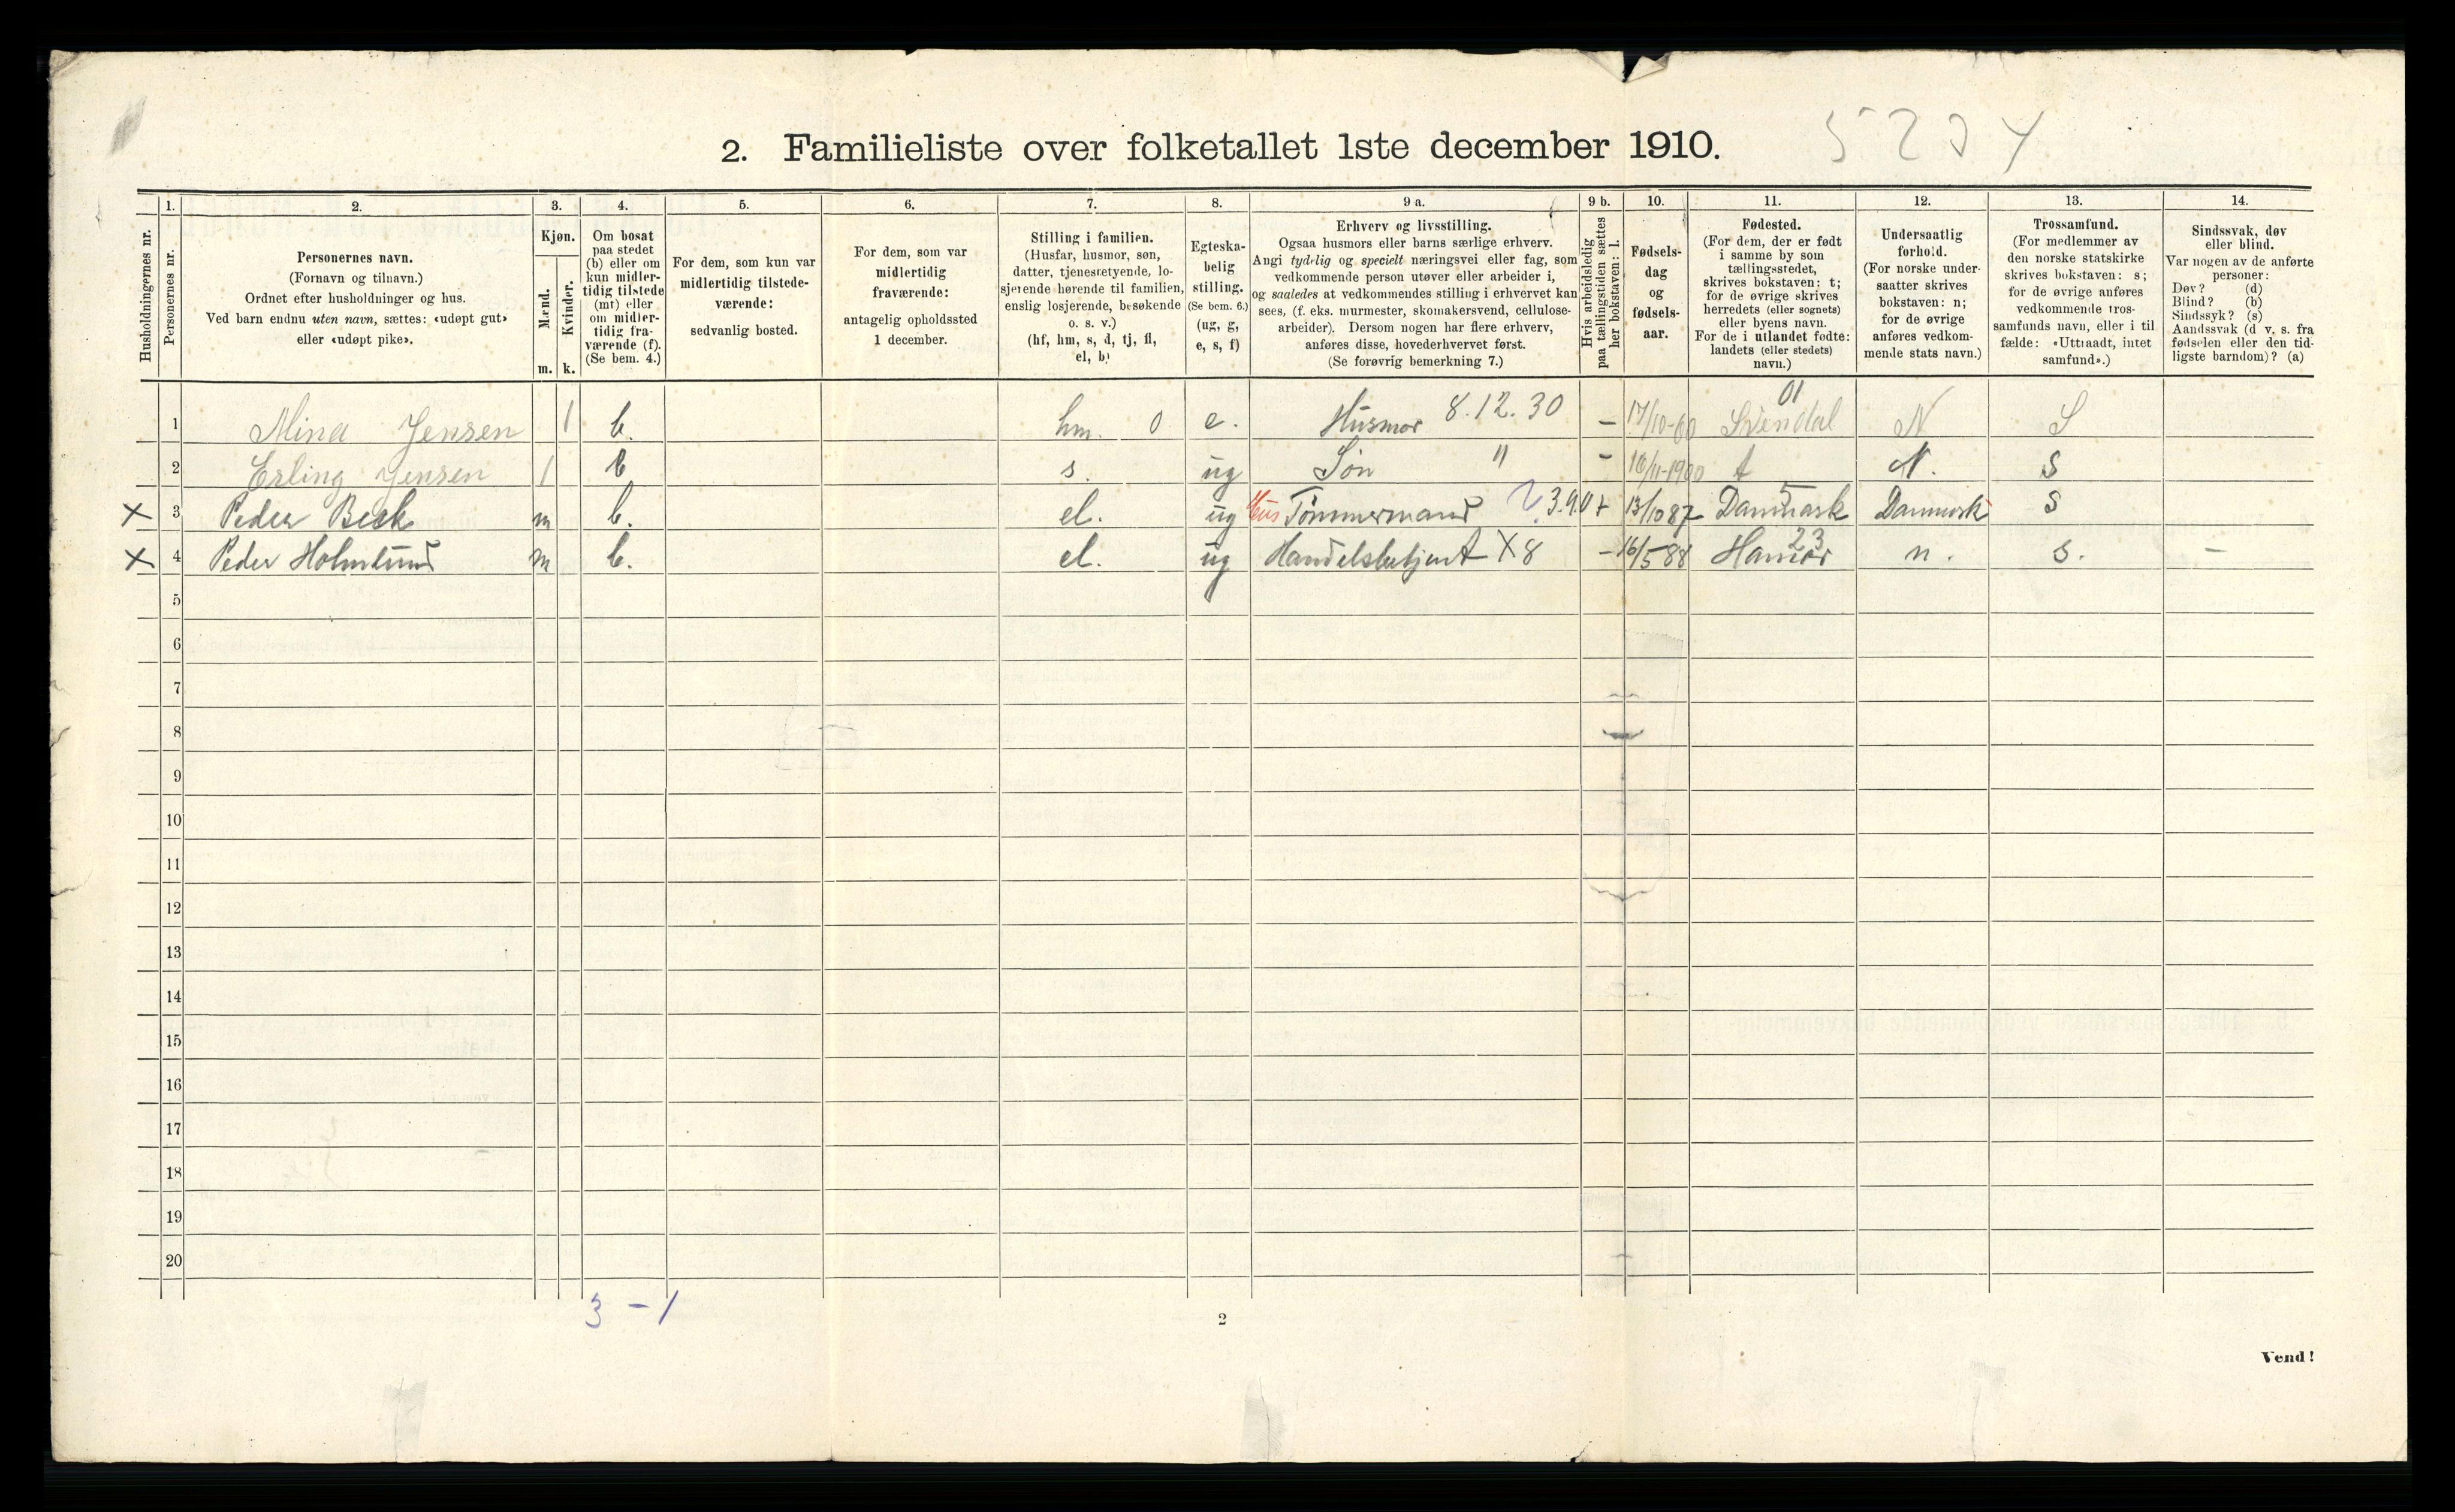 2. Familieliste over folketallet 1ste december 1910.
5204
1. 2. 3. 4. 5. 6. 7. 8. 9 a. 9 b. 10. 11. 12. 13. 14.
Husholdningernes nr.
Personernes nr.
Personernes navn.
(Fornavn og tilnavn.)
Ordnet efter husholdninger og hus.
Ved barn endnu uten navn, sættes: «udøpt gut»
eller «udøpt pike».
Kjøn.
Mænd.
Kvinder.
m. k.
Om bosat
paa stedet
(b) eller om
kun midler-
tidig tilstede
(mt) eller
om midler-
tidig fra-
værende (f).
(Se bem. 4.)
For dem, som kun var
midlertidig tilstede-
værende:
sedvanlig bosted.
For dem, som var
midlertidig
fraværende:
antagelig opholdssted
1 december.
Stilling i familien.
(Husfar, husmor, søn,
datter, tjenestetyende, lo-
sjerende hørende til familien,
enslig losjerende, besøkende
o. s. v.)
(hf, hm, s, d, tj, fl,
el, b)
Egteska-
belig
stilling.
(Se bem. 6.)
(ug, g,
e, s, f)
Erhverv og livsstilling.
Ogsaa husmors eller barns særlige erhverv.
Angi tydelig og specielt næringsvei eller fag, som
vedkommende person utøver eller arbeider i,
og saaledes at vedkommendes stilling i erhvervet kan
sees, (f. eks. murmester, skomakersvend, cellulose-
arbeider). Dersom nogen har flere erhverv,
anføres disse, hovederhvervet først.
(Se forøvrig bemerkning 7.)
Hvis arbeidsledig
paa tællingstiden sættes
her bokstaven: l.
Fødsels-
dag
og
fødsels-
aar.
Fødested.
(For dem, der er født
i samme by som
tællingsstedet,
skrives bokstaven: t;
for de øvrige skrives
herredets (eller sognets)
eller byens navn.
For de i utlandet fødte:
landets (eller stedets)
navn.)
Undersaatlig
forhold.
(For norske under-
saatter skrives
bokstaven: n;
for de øvrige
anføres vedkom-
mende stats navn.)
Trossamfund.
(For medlemmer av
den norske statskirke
skrives bokstaven: s;
for de øvrige anføres
vedkommende tros-
samfunds navn, eller i til-
fælde: «Uttraadt, intet
samfund».)
Sindssvak, døv
eller blind.
Var nogen av de anførte
personer:
Døv? (d)
Blind? (b)
Sindssyk? (s)
Aandssvak (d. v. s. fra
fødselen eller den tid-
ligste barndom)? (a)
01
1 Mina Jensen 1 b. hm. 0 e. Husmor 8.12.30 – 17/10-60 Svendal N S
2 Erling Jensen 1 b s. ug Søn " - 16/11-1900 t N. S
X 3 Peder Beck m b. el. ug Hus Tömmermand 3.90 + 13/10 87 Danmark Danmark S
X 4 Peder Holmlund m b. el. ug Handelsbetjent X8 – 16/5 88 Hamar 23 n. s. –
5
6
7
8
9
10
11
12
13
14
15
16
17
18
19
20
3 – 1
2
Vend!